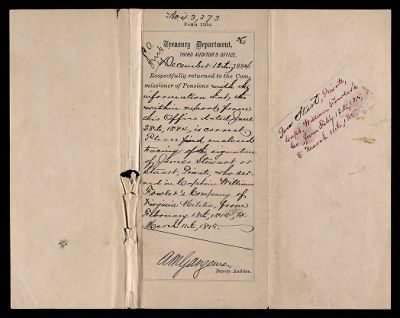 No 43,373
Form 150.
Treasury Department,
THIRD AUDITOR'S OFFICE,
December 12th, 1884
Respectfully returned to the Com-
missioner of Pensions with the
information that the
within report, from
this Office dated June
28th, 1884, is correct
Please find enclosed
tracing of the signature
of James Stewart or
Stuart, Private, who ser-
ved in Captain William
Fowler's Company of
Virginia Militia, from
February 13th, 1815, to
March 11th, 1815.
Deputy Auditor.
Stuart, Private,
Capt. William
from Feby 13th, 1815
to March 11th, 1815